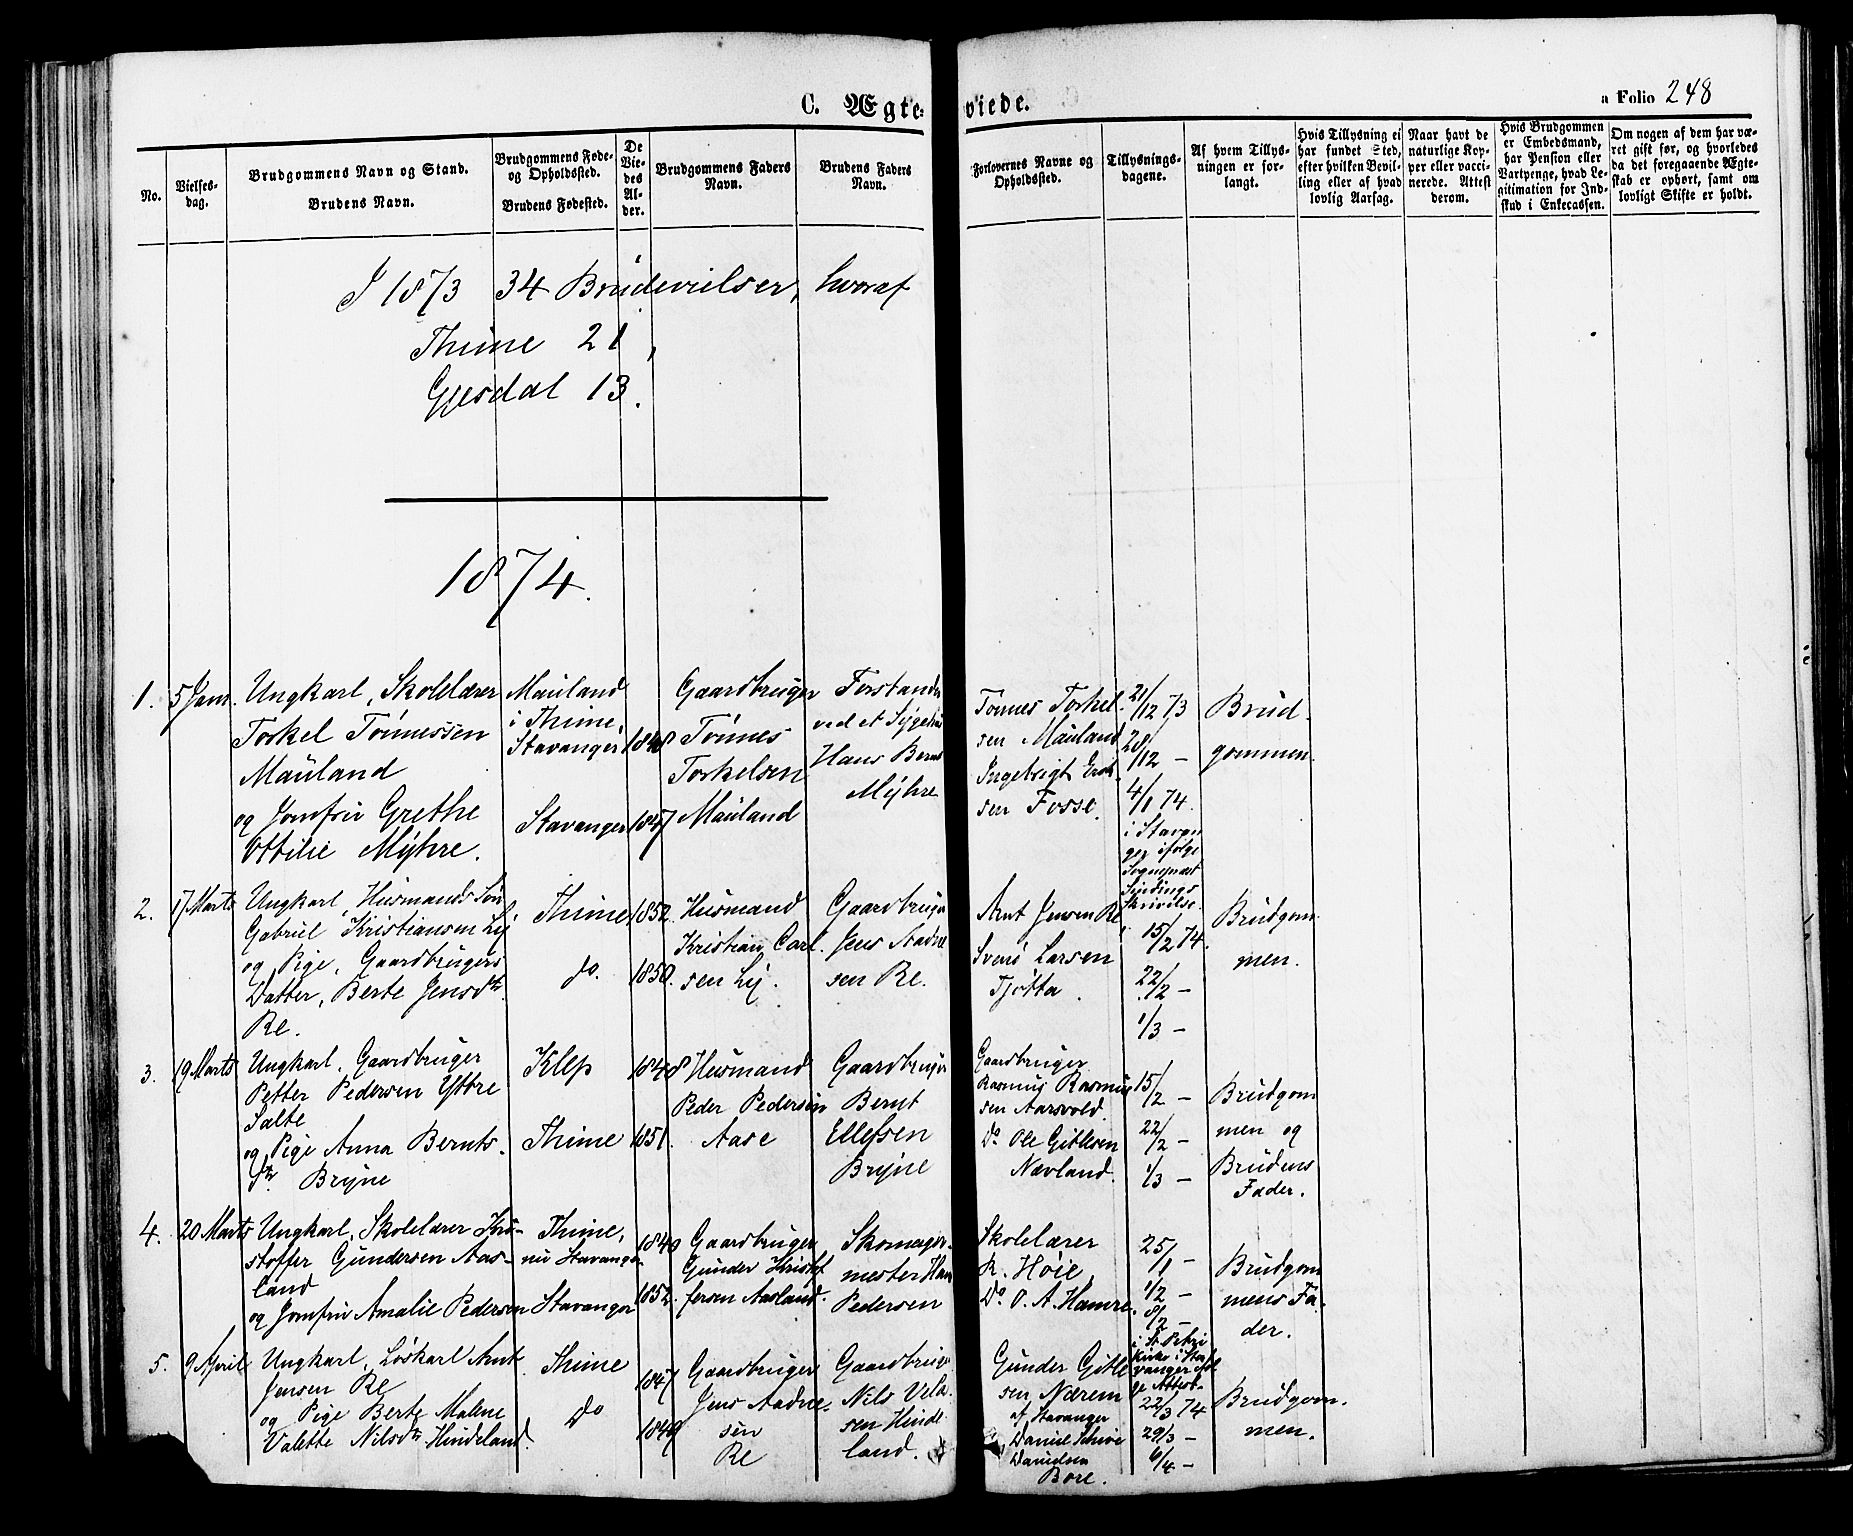 C. Ægteviede.
a Folio 248
No.
Vielses-
dag.
Brudgommens Navn og Stand.
Brudens Navn.
Brudgommens Føde-
og Opholdssted.
Brudens Fødested.
De
Vie-
des
Al-
der.
Brudgommens Faders
Navn.
Brudens Faders
Navn.
Forlovernes Navne og
Opholdssted.
Tillysnings-
dagene.
Af hvem Tillys-
ningen er for-
langt.
Hvis Tillysning ei
har fundet Sted,
efter hvilken Bevil-
ling eller af hvad
lovlig Aarsag.
Naar havt de
naturlige Kop-
per eller vacci-
nerede. Attest
derom.
Hvis Brudgommen
er Embedsmand,
har Pension eller
Vartpenge, hvad Le-
gitimation for Ind-
skud i Enkecassen.
Om nogen af dem har væ-
ret gift før, og hvorledes
da det foregaaende Ægte-
skab er ophørt, samt om
lovligt Skifte er holdt.
I 1873 34 Brudevielser, hvoraf
Thime 21,
Gjesdal 13.
1874.
1.
5 Janr.
Ungkarl, Skolelærer
Torkel Tønnessen
Mauland
og Jomfru Grethe
Ottilie Myhre.
Mauland
i Thime,
Stavanger
Stavanger
1848
1847
Gaardbruger
Tønnes
Torkelsen
Mauland
Forstander
ved et Sygehus
Hans Bernt
Myhre
Tønnes Torkel-
sen Mauland
Ingebrigt Erik-
sen Fosse.
21/12 73
28/12 -
4/1 74.
i Stavan
ger ifølge
Sogneprest
Sindings
Skrivelse.
Brud-
gommen
2.
17 Marts
Ungkarl, Husmands Søn
Gabriel Kristiansen Lij
og Pige, Gaardbrugers
Datter, Berte Jensdtr.
Re.
Thime,
do.
1852.
1850.
Husmand
Kristian Carl-
sen Lij.
Gaardbruger
Jens Aadne
sen Re.
Arnt Jensen Re
Svend Larsen
Tjøtta.
15/2 74.
22/2 -
1/3 -
Brudgom
men.
3.
19 Marts
Ungkarl, Gaardbruger
Petter Pedersen Yttre
Salte
og Pige Anna Bernts-
dtr. Bryne
Klep
Thime
1848
1851.
Husmand
Peder Pedersen
Aase
Gaardbruger
Bernt
Ellefsen
Bryne
Gaardbruger
Rasmus Rasmus
sen Aarsvold.
Do Ole Gitlesen
Nævland.
15/2 -
22/2 -
1/3 -
Brudgom
men og
Brudens
Fader.
4.
20 Marts
Ungkarl, Skolelærer Kri-
stoffer Gundersen Aas-
land
og Jomfru Amalie Pedersen
Thime,
nu Stavanger
Stavanger
1849
1852.
Gaardbruger
Gunder Kristof
fersen Aasland.
Skomager-
mester Han
Pedersen
Skolelærer
R. Høie,
Do O. A. Hamre.
25/1 -
1/2 -
8/2 -
i St. Petri
Kirke i Sta
vanger iføl
ge Attest.
Brudgom
mens Fa-
der.
5.
9 April
Ungkarl, Løskarl Arnt
Jensen Re
og Pige Berte Malene
Valette Nilsdtr Hindeland.
Thime
Do
1847
1849
Gaardbruger
Jens Aadne-
sen
Re
Gaardbruger
Nils Vela
sen Hinde
land.
Gunder Gitle
sen Nærem
af Stavanger
Daniel Schive
Danielsen
Bore.
22/3 74
29/3 -
6/4 -
Brudgom-
men.